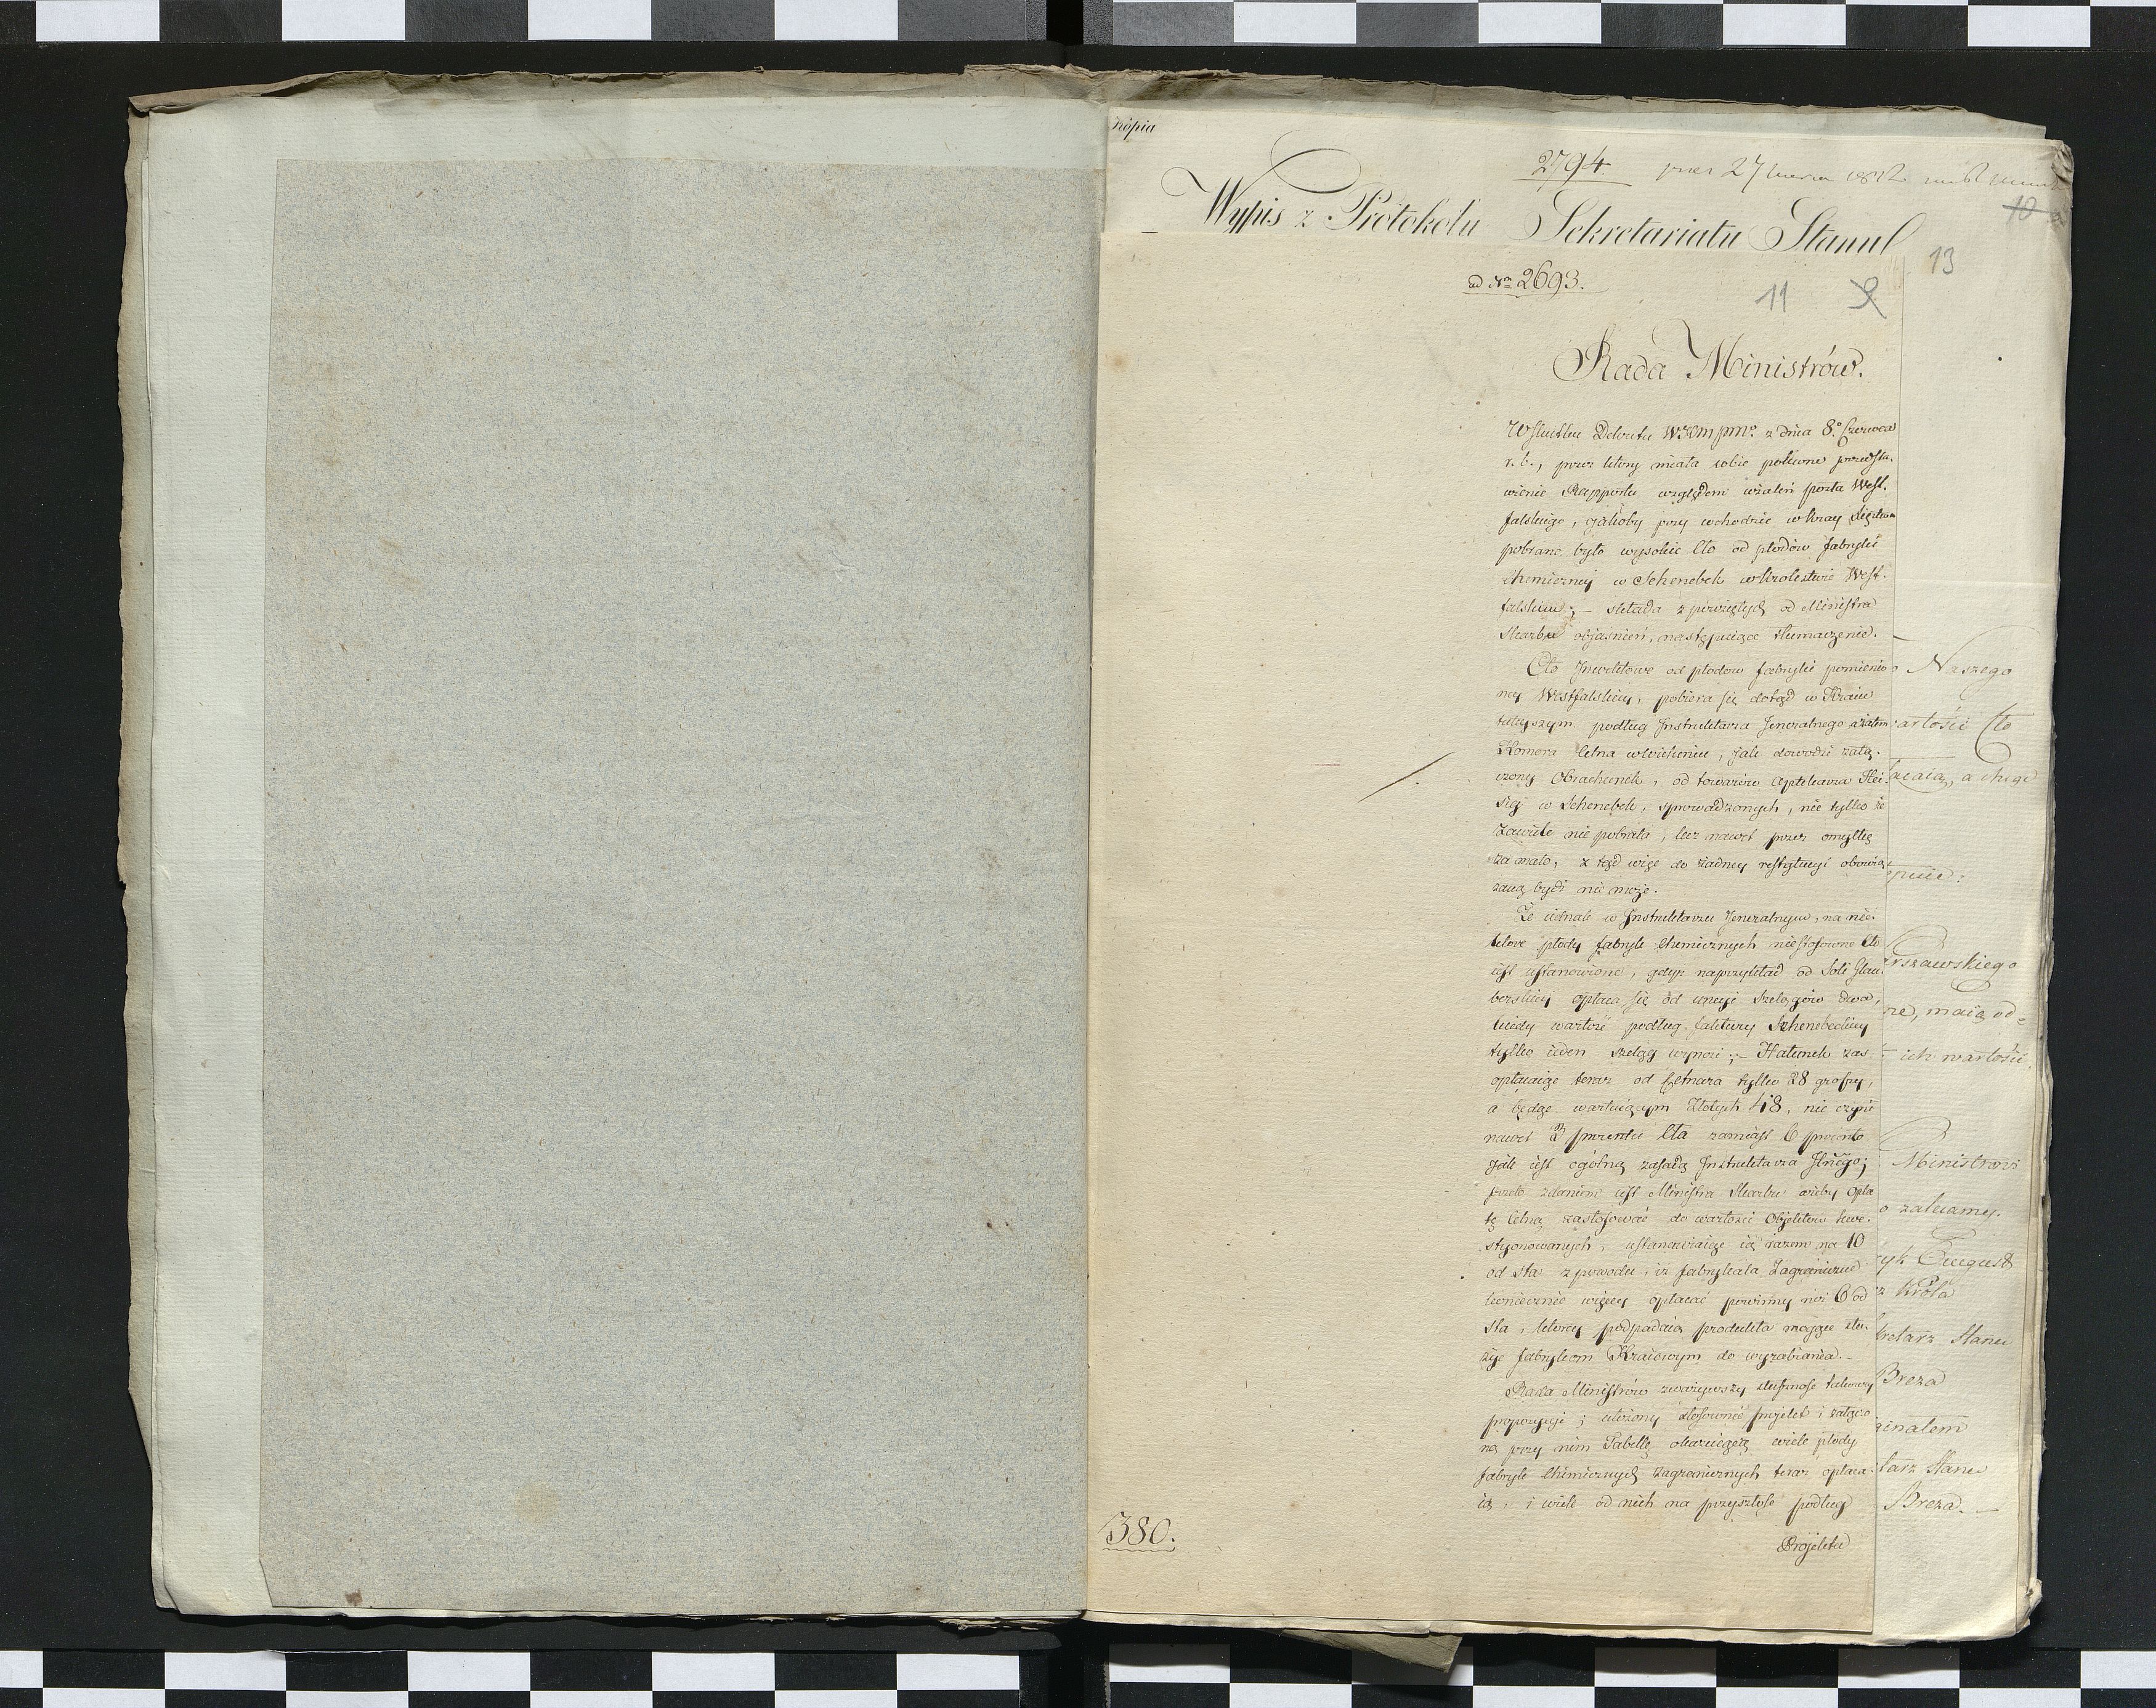 Kopia
2794.
27 1812
10
Wypis z Protokołu Sekretariatu Stanu
13
ad Nrm 2693.
11 9
Rada Ministrów.
W skutku Dekretu WKMPMo. z dnia 8o. Czerwca
r. b., przez który miała sobie polecone przedsta-
wienie Rapportu względem użaleń posła West-
falskiego, jakoby przy wchodzie w kray
pobrane było wysokie Cło od płodów fabryki
Chemiczney w Schenebek w Krolestwie West-
falskim; – składa z powziętych od Ministra
Skarbu objaśnień, następuiące tłumaczenie.
Cło Inwektowe od płodow fabryki pomienio
ney Westfalskiey, pobiera się dotąd w Kraiu
tuteyszym podług Instruktarza Jeneralnego a zatem
Komora Celna w, jak dowodzi załą-
czony Obrachunek, od towarów Aptekarza Hei-
w Schenebek, sprowadzonych, nie tylko że
zawiele nie pobrała, lecz nawet przez omyłkę
za mało, z tąd więc do żadney restytucyi obowią
zaną bydź nie może.
Że iednak w Instruktarzu Jeneralnym, na nie-
które płody fabryk Chemicznych niestosowne Cło
iest ustanowione, gdyż naprzykład od Soli Glau-
berskiey opłaca się od uncyi szelągów dwa,
kiedy wartość podług faktury Schenebeckiey
tylko ieden szeląg wynosi; – Hałunek zaś
opłacaiąc teraz od Cetnara tylko 28 groszy,
a będąc wartuiącym Złotych 48, nie czyni
nawet 2 procentu Cła zamiast 6 procento
jak iest ogólną zasadą Instruktarza Jlnego;
przeto zdaniem iest Ministra Skarbu ażeby opła
tę Celną zastosować do wartości Objektów kwe-
styonowanych, ustanawiaiąc ią razem na 10
od sta z powodu, iż fabrykata Zagraniczne
koniecznie więcey opłacać powinny niż 6 od
sta, którey podpadaią produkta mogące słu-
żyć fabrykom Kraiowym do wyrabiania. –
Rada Ministrów zważywszy słuszność takowey
propozycyi; ułożony stosownie projekt i załączo
ną przy nim Tabellę okazuiącą wiele płody
fabryk Chimicznych zagranicznych teraz opłaca-
ią, i wiele od nich na przyszłość podług
Projektu
380.
Naszego
artości Cło
caią, a
puie:
rszawskiego
re, maią od-
ich wartości.
Ministrowi
o zalecamy.
yk August
z Króla
kretarz Stanu
Breza
ginałem
tarz Stanu
Breza. –